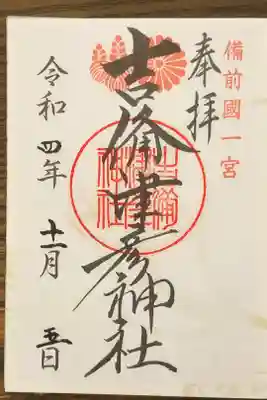 備前國一宮
奉拝
吉備津彦神社
令和四年十一月五日